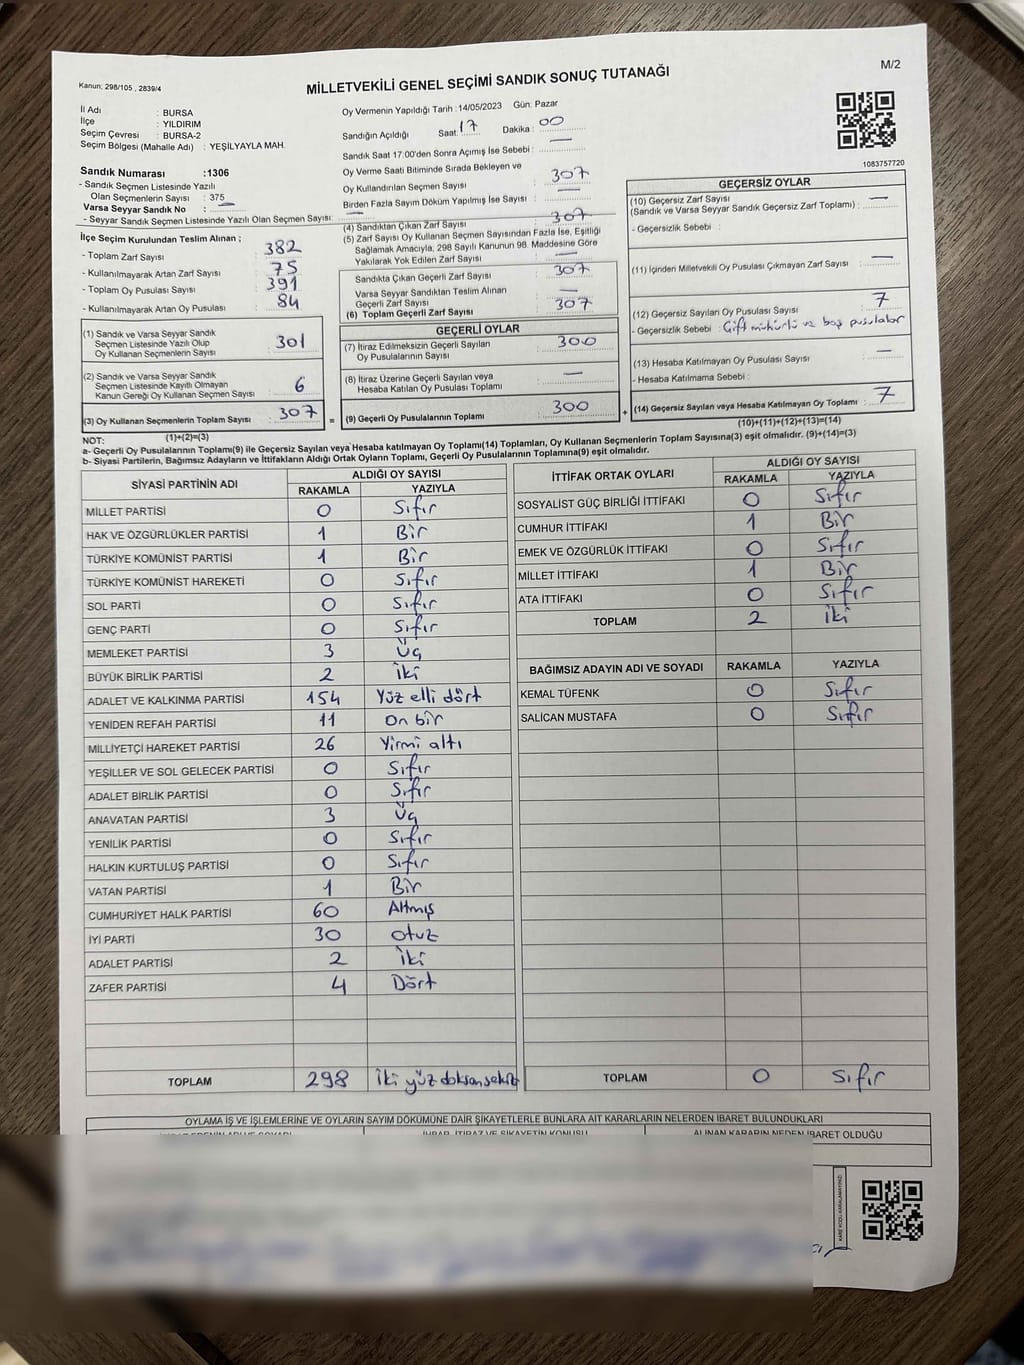 Kanun: 298/105 , 2839/4
MİLLETVEKİLİ GENEL SEÇİMİ SANDIK SONUÇ TUTANAĞI
M/2
İl Adı : BURSA
İlçe : YILDIRIM
Seçim Çevresi : BURSA-2
Seçim Bölgesi (Mahalle Adı) : YEŞİLYAYLA MAH.
Sandık Numarası :1306
- Sandık Seçmen Listesinde Yazılı
Olan Seçmenlerin Sayısı : 375
Varsa Seyyar Sandık No : —
- Seyyar Sandık Seçmen Listesinde Yazılı Olan Seçmen Sayısı: —
İlçe Seçim Kurulundan Teslim Alınan ;
- Toplam Zarf Sayısı : 382
- Kullanılmayarak Artan Zarf Sayısı : 75
- Toplam Oy Pusulası Sayısı : 391
- Kullanılmayarak Artan Oy Pusulası : 84
(1) Sandık ve Varsa Seyyar Sandık
Seçmen Listesinde Yazılı Olup
Oy Kullanan Seçmenlerin Sayısı : 301
(2) Sandık ve Varsa Seyyar Sandık
Seçmen Listesinde Kayıtlı Olmayan
Kanun Gereği Oy Kullanan Seçmen Sayısı : 6
(3) Oy Kullanan Seçmenlerin Toplam Sayısı : 307
(1)+(2)=(3)
Oy Vermenin Yapıldığı Tarih : 14/05/2023 Gün: Pazar
Sandığın Açıldığı Saat: 17 Dakika : 00
Sandık Saat 17:00'den Sonra Açımış İse Sebebi : —
Oy Verme Saati Bitiminde Sırada Bekleyen ve
Oy Kullandırılan Seçmen Sayısı : 307
Birden Fazla Sayım Döküm Yapılmış İse Sayısı : —
(4) Sandıktan Çıkan Zarf Sayısı : 307
(5) Zarf Sayısı Oy Kullanan Seçmen Sayısından Fazla İse, Eşitliği
Sağlamak Amacıyla, 298 Sayılı Kanunun 98. Maddesine Göre
Yakılarak Yok Edilen Zarf Sayısı : —
Sandıkta Çıkan Geçerli Zarf Sayısı : 307
Varsa Seyyar Sandıktan Teslim Alınan
Geçerli Zarf Sayısı : —
(6) Toplam Geçerli Zarf Sayısı : 307
GEÇERLİ OYLAR
(7) İtiraz Edilmeksizin Geçerli Sayılan
Oy Pusulalarının Sayısı : 300
(8) İtiraz Üzerine Geçerli Sayılan veya
Hesaba Katılan Oy Pusulası Toplamı : —
= (9) Geçerli Oy Pusulalarının Toplamı : 300
1083757720
GEÇERSİZ OYLAR
(10) Geçersiz Zarf Sayısı : —
(Sandık ve Varsa Seyyar Sandık Geçersiz Zarf Toplamı)
- Geçersizlik Sebebi :
(11) İçinden Milletvekili Oy Pusulası Çıkmayan Zarf Sayısı : —
(12) Geçersiz Oy Pusulası Sayısı : 7
- Geçersizlik Sebebi : Çift mühürlü ve boş pusulalar
(13) Hesaba Katılmayan Oy Pusulası Sayısı : —
- Hesaba Katılmama Sebebi :
+ (14) Geçersiz Sayılan veya Hesaba Katılmayan Oy Toplamı : 7
(10)+(11)+(12)+(13)=(14)
NOT:
a- Geçerli Oy Pusulalarının Toplamı(9) ile Geçersiz Sayılan veya Hesaba katılmayan Oy Toplamı(14) Toplamları, Oy Kullanan Seçmenlerin Toplam Sayısına(3) eşit olmalıdır. (9)+(14)=(3)
b- Siyasi Partilerin, Bağımsız Adayların ve İttifakların Aldığı Ortak Oyların Toplamı, Geçerli Oy Pusulalarının Toplamına(9) eşit olmalıdır.
SİYASİ PARTİNİN ADI ALDIĞI OY SAYISI
RAKAMLA YAZIYLA
MİLLET PARTİSİ 0 Sıfır
HAK VE ÖZGÜRLÜKLER PARTİSİ 1 Bir
TÜRKİYE KOMÜNİST PARTİSİ 1 Bir
TÜRKİYE KOMÜNİST HAREKETİ 0 Sıfır
SOL PARTİ 0 Sıfır
GENÇ PARTİ 0 Sıfır
MEMLEKET PARTİSİ 3 Üç
BÜYÜK BİRLİK PARTİSİ 2 İki
ADALET VE KALKINMA PARTİSİ 154 Yüz elli dört
YENİDEN REFAH PARTİSİ 11 On bir
MİLLİYETÇİ HAREKET PARTİSİ 26 Yirmi altı
YEŞİLLER VE SOL GELECEK PARTİSİ 0 Sıfır
ADALET BİRLİK PARTİSİ 0 Sıfır
ANAVATAN PARTİSİ 3 Üç
YENİLİK PARTİSİ 0 Sıfır
HALKIN KURTULUŞ PARTİSİ 0 Sıfır
VATAN PARTİSİ 1 Bir
CUMHURİYET HALK PARTİSİ 60 Altmış
İYİ PARTİ 30 otuz
ADALET PARTİSİ 2 İki
ZAFER PARTİSİ 4 Dört
TOPLAM 298 İki yüz doksan sekiz
İTTİFAK ORTAK OYLARI ALDIĞI OY SAYISI
RAKAMLA YAZIYLA
SOSYALİST GÜÇ BİRLİĞİ İTTİFAKI 0 Sıfır
CUMHUR İTTİFAKI 1 Bir
EMEK VE ÖZGÜRLÜK İTTİFAKI 0 Sıfır
MİLLET İTTİFAKI 1 Bir
ATA İTTİFAKI 0 Sıfır
TOPLAM 2 İki
BAĞIMSIZ ADAYIN ADI VE SOYADI RAKAMLA YAZIYLA
KEMAL TÜFENK 0 Sıfır
SALİCAN MUSTAFA 0 Sıfır
TOPLAM 0 Sıfır
OYLAMA İŞ VE İŞLEMLERİNE VE OYLARIN SAYIM DÖKÜMÜNE DAİR ŞİKAYETLERLE BUNLARA AİT KARARLARIN NELERDEN İBARET BULUNDUKLARI
İHBAR, İTİRAZ VE ŞİKAYETİN KONUSU ALINAN KARARIN NEDEN İBARET OLDUĞU
KARE KODU KARALAMAYINIZ!